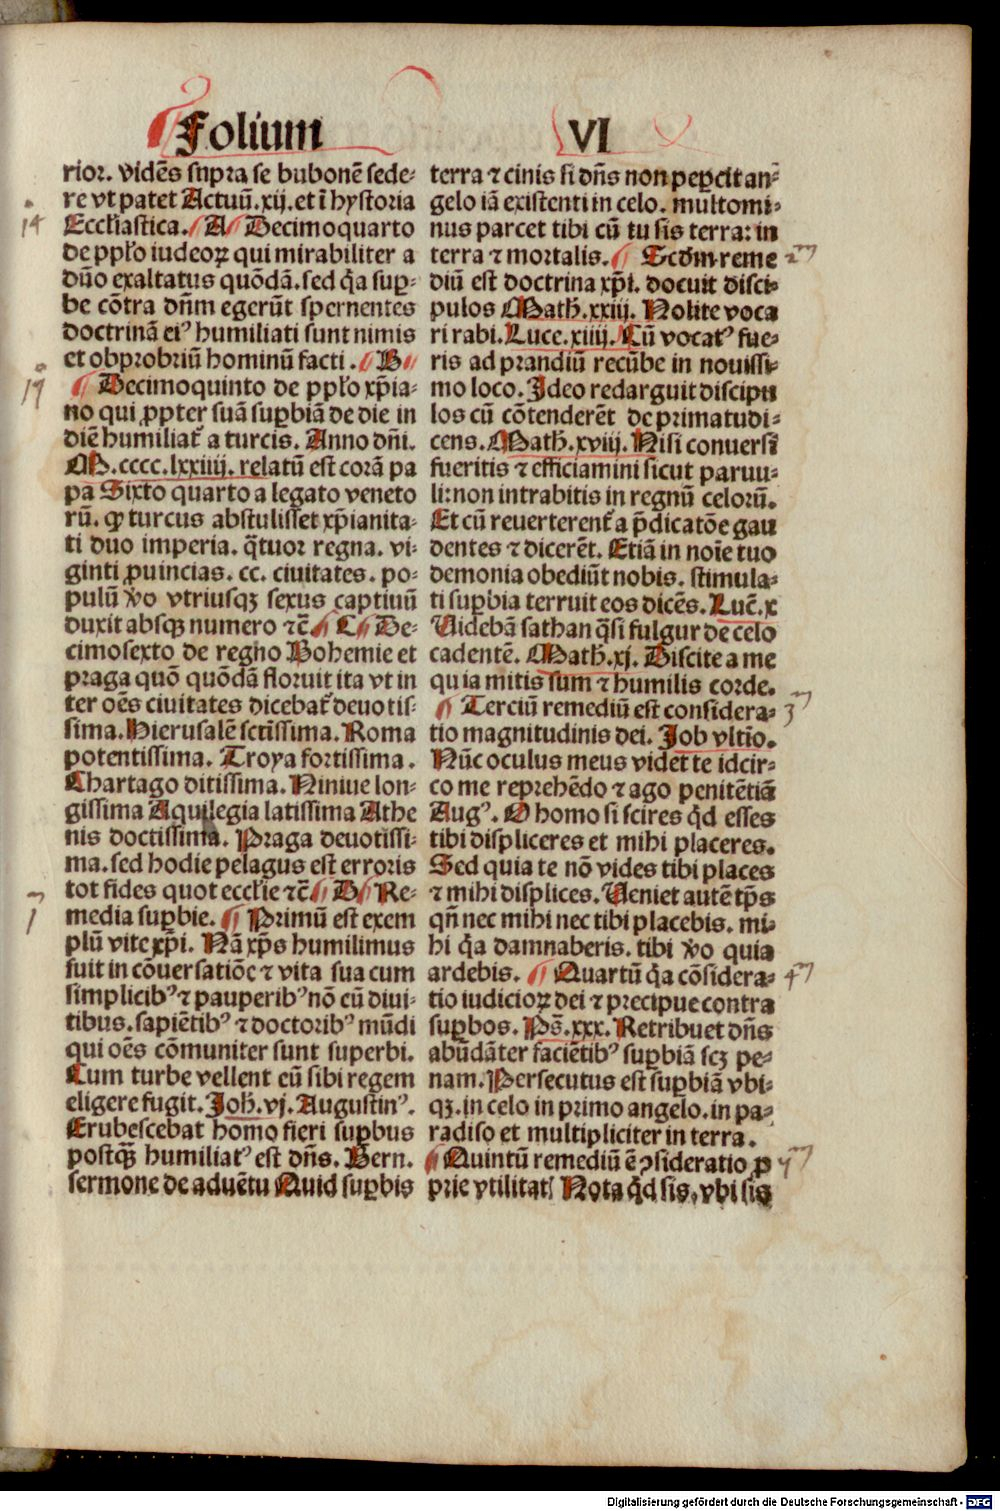 Folium VI
rior. vidēs supra se bubonē sede-
re vt patet Actuū.xij. et ī hystoria
Eccłiastica. A Decimoquarto
de pp̄lo iudeoꝝ qui mirabiliter a
dn̄o exaltatus quōdā. sed q̄a suꝑ-
be cōtra dn̄m egerūt spernentes
doctrinā eiꝰ humiliati sunt nimis
et obprobriū hominū facti. B
Decimoquinto de pp̄lo xp̄ia-
no qui ꝓpter suā suꝑbiā de die in
diē humiliat̄ a turcis. Anno dn̄i.
M.cccc.lxxiiij. relatū est corā pa
pa Sixto quarto a legato veneto
rū. ꝙ turcus abstulisset xp̄ianita-
ti duo imperia. q̄tuor regna. vi-
ginti ꝓuincias. cc. ciuitates. po-
pulū ꝟo vtriusqꝫ sexus captiuū
duxit absqꝫ numero ⁊c̄ C De-
cimosexto de regno Bohemie et
praga quō quōdā floruit ita vt in
ter oēs ciuitates dicebat̄ deuotis-
sima. Hierusalē sct̄issima. Roma
potentissima. Troya fortissima.
Chartago ditissima. Niniue lon-
gissima Aquilegia latissima Athe
nis doctissima. Praga deuotissi-
ma. sed hodie pelagus est erroris
tot fides quot eccłie ⁊c̄ D Re-
media suꝑbie. Primū est exem
plū vite xp̄i. Nā xp̄s humilimus
fuit in cōuersatiōe ⁊ vita sua cum
simplicibꝰ ⁊ pauperibꝰ nō cū diui-
tibus. sapiētibꝰ ⁊ doctoribꝰ mūdi
qui oēs cōmuniter sunt superbi.
Cum turbe vellent eū sibi regem
eligere fugit. Joh̄. vj. Augustinꝰ.
Erubescebat homo fieri suꝑbus
postqꝫ̄ humiliatꝰ est dn̄s. Bern.
sermone de aduētu Quid suꝑbis
terra ⁊ cinis si dn̄s non peꝑcit an-
gelo iā existenti in celo. multomi-
nus parcet tibi cū tu sis terra: in
terra ⁊ mortalis. Scd̄m reme
diū est doctrina xp̄i. docuit disci-
pulos Math̄. xxiij. Nolite voca
ri rabi. Luce. xiiij. Cū vocatꝰ fue-
ris ad prandiū recūbe in nouissi-
mo loco. Ideo redarguit discipu
los cū cōtenderēt de primatu di-
cens. Math̄. xviij. Nisi conuersi
fueritis ⁊ efficiamini sicut paruu-
li: non intrabitis in regnū celorū.
Et cū reuerterent̄ a p̄dicatōe gau
dentes ⁊ dicerēt. Etiā in noīe tuo
demonia obediūt nobis. stimula-
ti suꝑbia terruit eos dicēs. Luc̄. x
Videbā sathan q̄si fulgur de celo
cadentē. Math̄. xj. Discite a me
quia mitis sum ⁊ humilis corde.
Terciū remediū est considera-
tio magnitudinis dei. Job vltīo.
Nūc oculus meus videt te idcir-
co me reprehēdo ⁊ ago penitētiā
Augꝰ. O homo si scires q̄d esses
tibi displiceres et mihi placeres.
Sed quia te nō vides tibi places
⁊ mihi displices. Veniet autē tp̄s
qn̄ nec mihi nec tibi placebis. mi-
hi q̄a damnaberis. tibi ꝟo quia
ardebis. Quartū q̄a cōsidera-
tio iudicioꝝ dei ⁊ precipue contra
suꝑbos. Ps̄. xxx. Retribuet dn̄s
abūdāter faciētibꝰ suꝑbiā scꝫ pe-
nam. Persecutus est suꝑbiā vbi-
qꝫ. in celo in primo angelo. in pa-
radiso et multipliciter in terra.
Quintū remediū ē ꝯsideratio ꝓ
prie vtilitatꝭ Nota q̄d sis, vbi sis
14
15
1
2
3
4
5
Digitalisierung gefördert durch die Deutsche Forschungsgemeinschaft - DFG